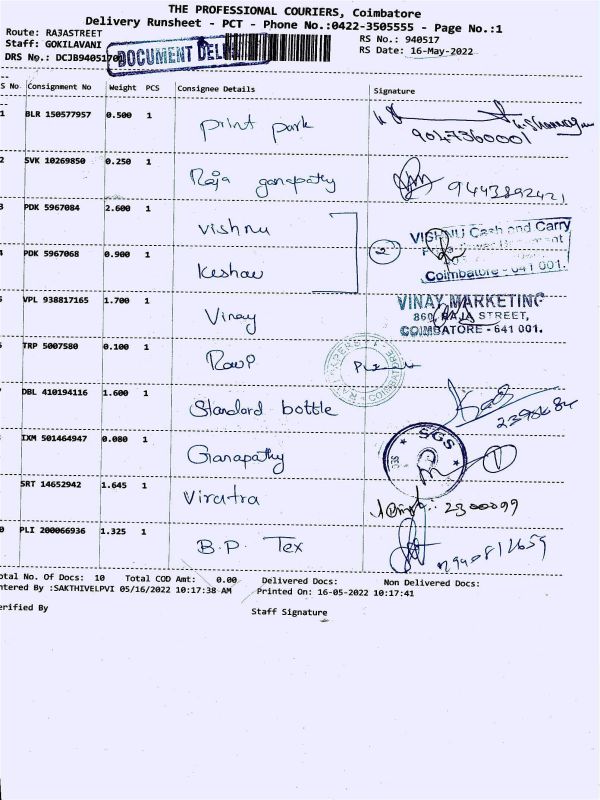 THE PROFESSIONAL COURIERS, Coimbatore
Delivery Runsheet - PCT - Phone No.:0422-3505555 - Page No.:1
Route: RAJASTREET
RS No.: 940517
Staff: GOKILAVANI
RS Date: 16-May-2022
DRS No.: DCJB9405170
DOCUMENT DEL
S No Consignment No Weight PCS Consignee Details Signature
1 BLR 150577957 0.500 1 Print park
9047360001
2 SVK 10269850 0.250 1 Raja ganapathy 9443892421
3 PDK 5967084 2.600 1 Vishnu
VISHNU Cash and Carry
4 PDK 5967068 0.900 1 Keshav 2
Coimbatore - 641 001.
5 VPL 938817165 1.700 1 Vinay
VINAY MARKETING
860, RAJA STREET,
COIMBATORE - 641 001.
TRP 5007580 0.100 1 Roopi
DBL 410194116 1.600 1 Standard bottle
2398684
IXM 501464947 0.080 1 Ganapathy
SGS
SRT 14652942 1.645 1 Viratra 2300099
0 PLI 200066936 1.325 1 B.P. Tex
otal No. Of Docs: 10 Total COD Amt: 0.00 Delivered Docs: Non Delivered Docs:
ntered By :SAKTHIVELPVI 05/16/2022 10:17:38 AM Printed On: 16-05-2022 10:17:41
erified By Staff Signature